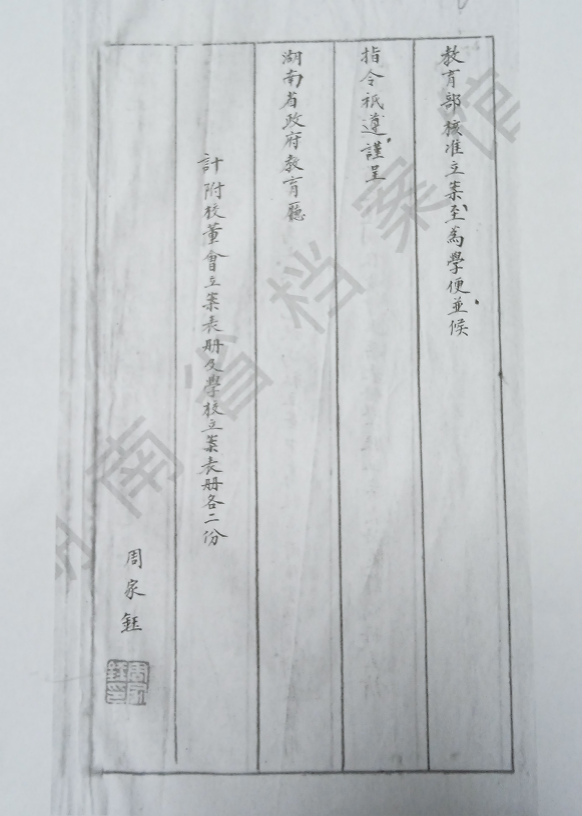 教育部核准立案至為學便並候
指令祇遵謹呈
湖南省政府教育廳
計附校董會立案表册及學校立案表册各二份
周家鈺
湖南省档案馆